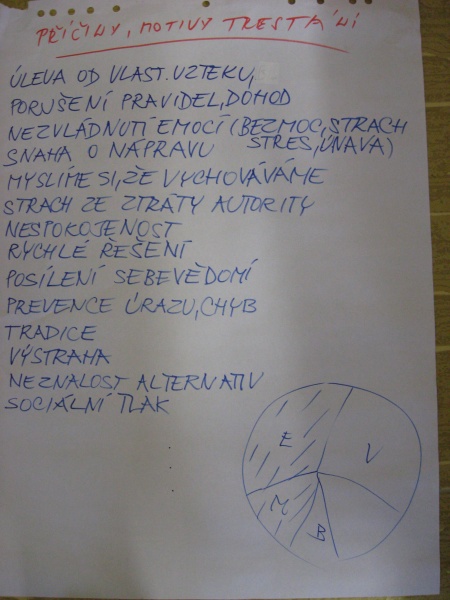 PŘÍČINY, MOTIVY TRESTÁNÍ
ÚLEVA OD VLAST. VZTEKU,
PORUŠENÍ PRAVIDEL, DOHOD
NEZVLÁDNUTÍ EMOCÍ (BEZMOC, STRACH
STRES, ÚNAVA)
SNAHA O NÁPRAVU
MYSLÍME SI, ŽE VYCHOVÁVÁME
STRACH ZE ZTRÁTY AUTORITY
NESPOKOJENOST
RYCHLÉ ŘEŠENÍ
POSÍLENÍ SEBEVĚDOMÍ
PREVENCE ÚRAZU, CHYB
TRADICE
VÝSTRAHA
NEZNALOST ALTERNATIV
SOCIÁLNÍ TLAK
E
V
M
B